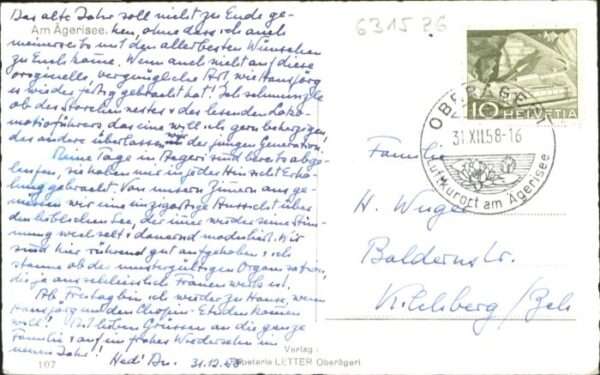 Das alte Jahr soll nicht zu Ende ge-
Am Ägerisee.
hen, ohne dass ich auch
meinerseits mit den allerbesten Wünschen
zu Euch käme. Wenn auch nicht auf diese
originelle, vergnügliche Art, wie Hansjörg
es wieder fertig gebracht hat! Ich schmunzle
ob des Storchennestes & des lesenden Loko-
motivführers das eine will ich gern beherzigen,
das andere überlassen wir der jungen Generation.
Meine Tage in Aegeri sind bereits abge-
laufen, sie haben mir in jeder Hinsicht Erho-
lung gebracht. Von unsern Zimmern aus ge-
niessen wir eine einzigartige Aussicht über
den lieblichen See, der immer wieder seine Stim-
mung wechselt & dauernd moduliert. Wir
sind hier rührend gut aufgehoben & ich
staune ob der mustergültigen Organisation,
die ja ausschliesslich Frauenwerk ist.
Ab Freitag bin ich wieder zu Hause, wenn
Hansjörg um den Chopin-Etuden kommen
will! Mit lieben Grüssen an die ganze
Familie & auf ein frohes Wiedersehn im
neuen Jahr!
Hedi
31.12.58
107
Verlag:
LETTER Oberägeri
6315 ZG
10 HELVETIA
OBERÄGERI
31.XII.58-16
Luftkurort am Ägerisee
Familie
H.
Baldernstr.
Kilchberg / Zch